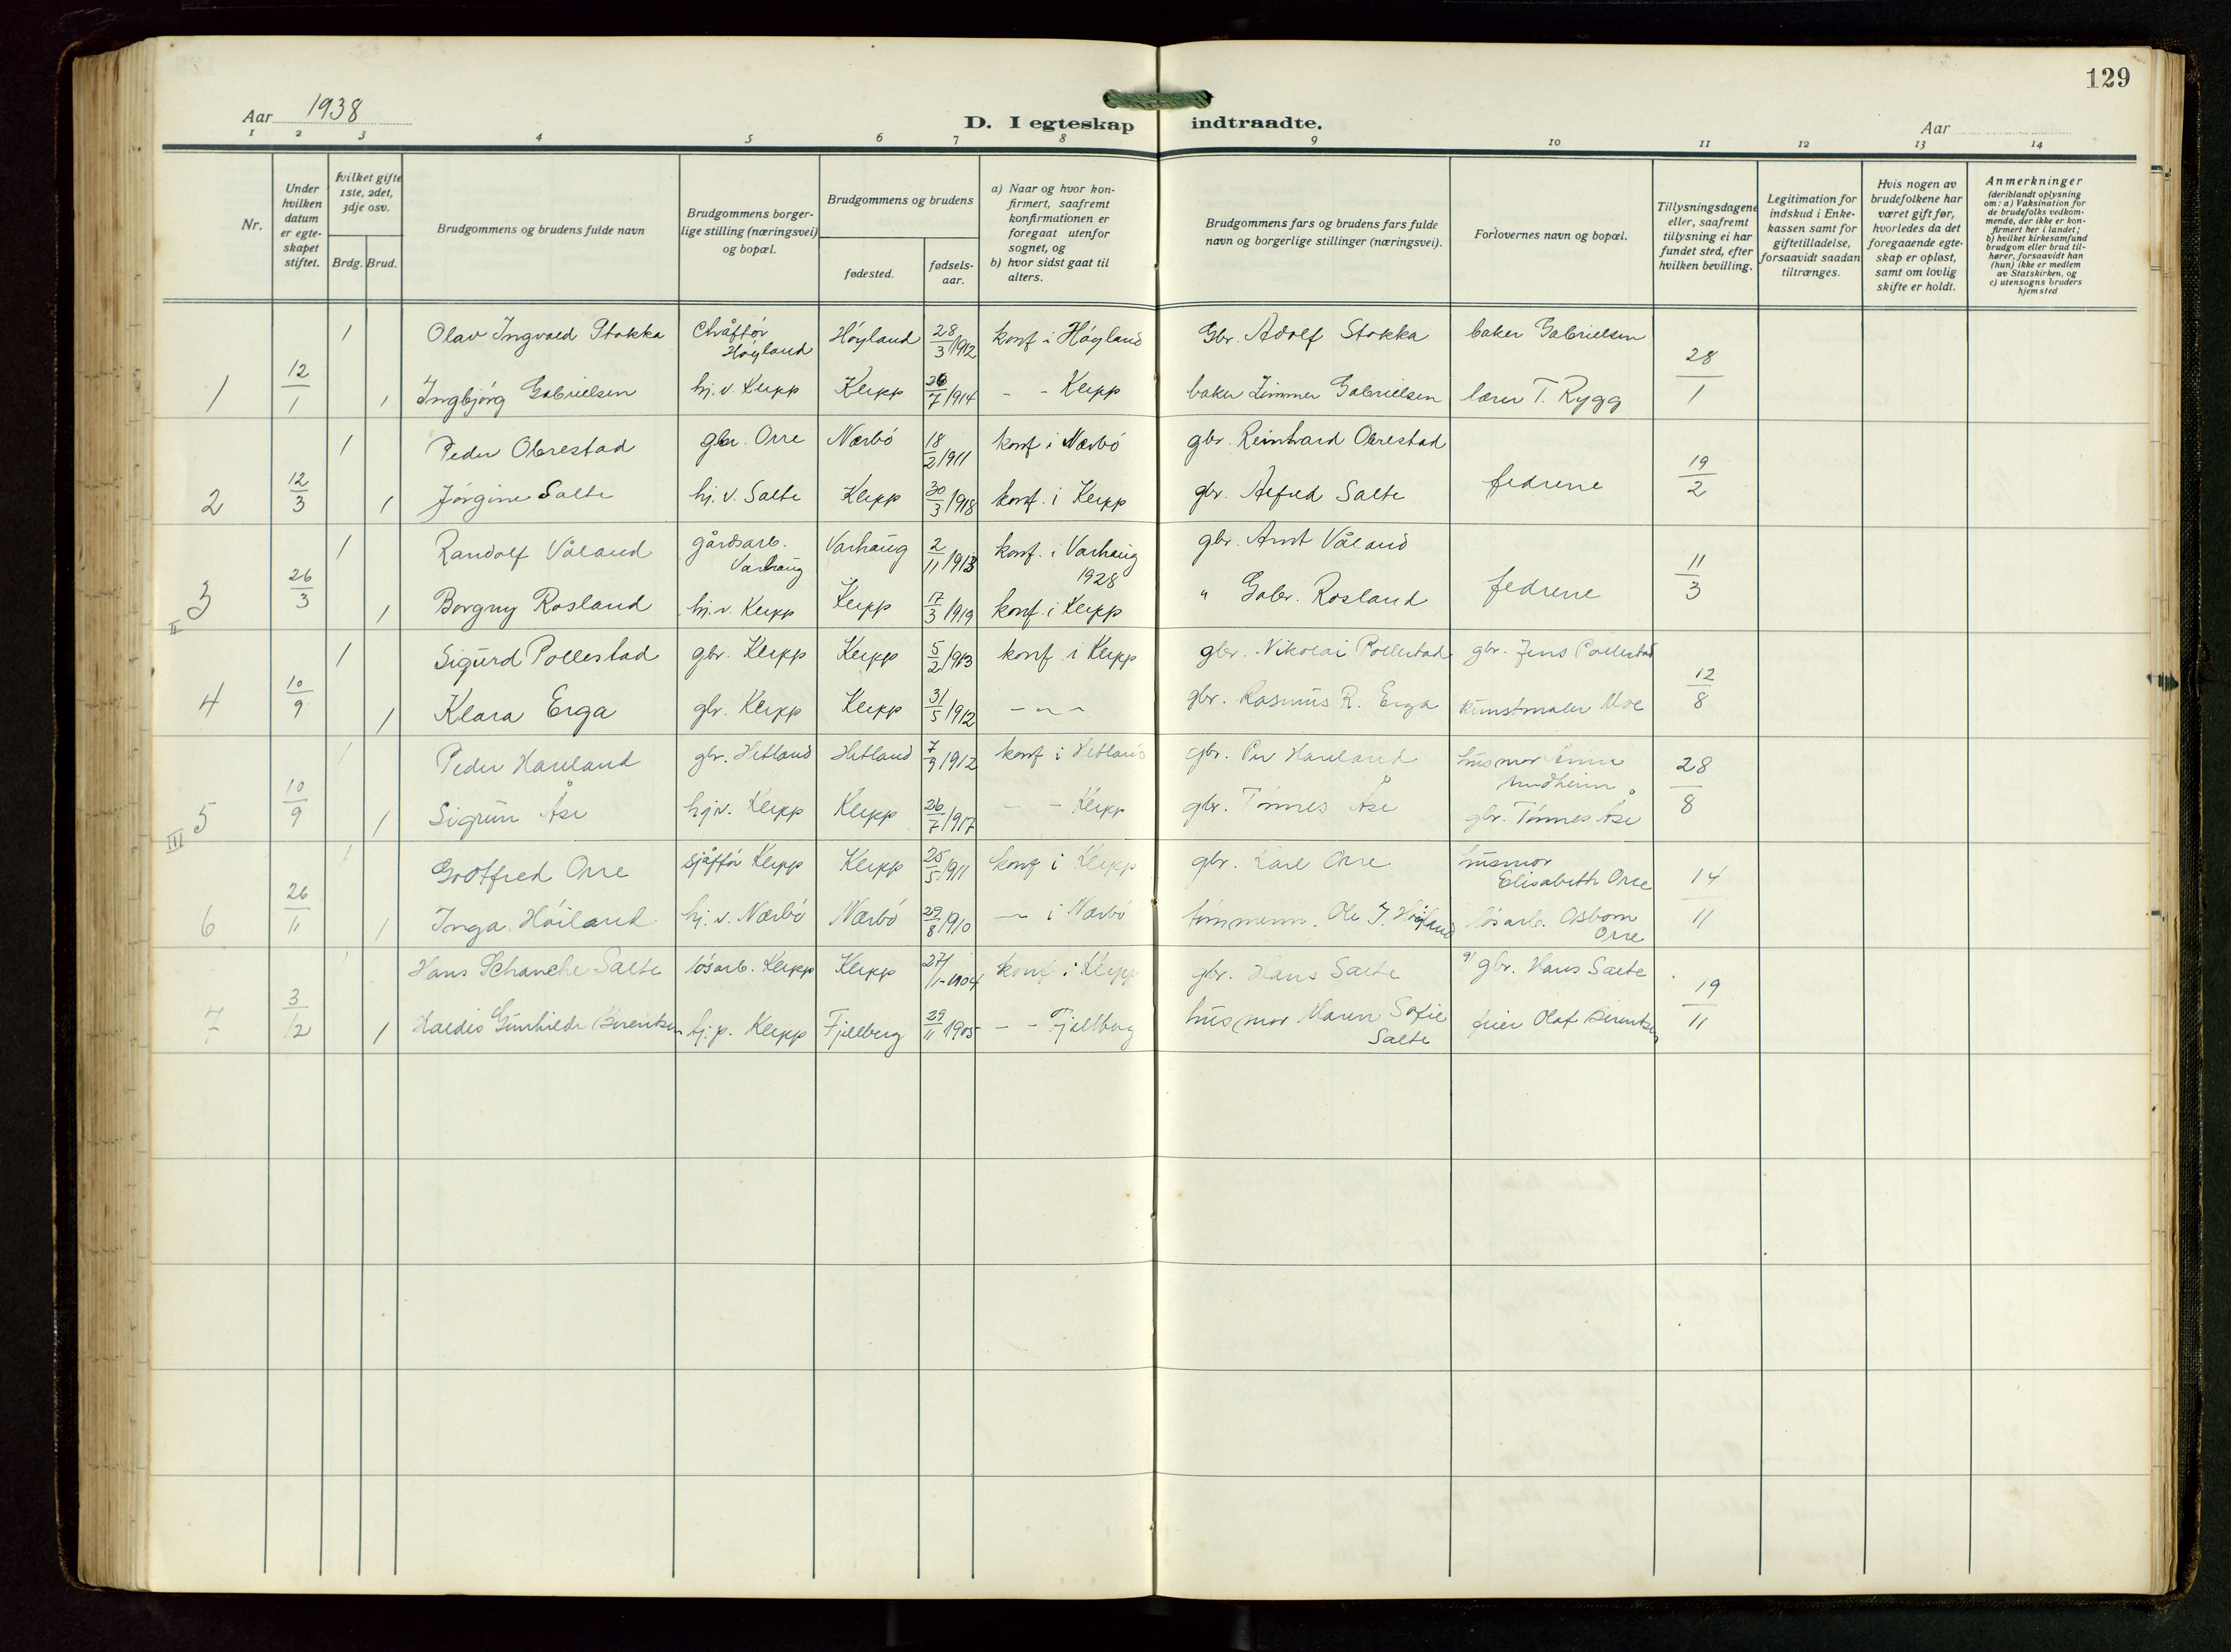 129
Aar 1938
D. I egteskap indtraadte.
Aar
1 2 3 4 5 6 7 8 9 10 11 12 13 14
Nr.
Under hvilken datum er egteskapet stiftet.
Hvilket gifte 1ste, 2det, 3dje osv.
Brdg. Brud.
Brudgommens og brudens fulde navn
Brudgommens borgerlige stilling (næringsvei) og bopæl.
Brudgommens og brudens
fødested.
fødselsaar.
a) Naar og hvor konfirmert, saafremt konfirmationen er foregaat utenfor sognet, og
b) hvor sidst gaat til alters.
Brudgommens fars og brudens fars fulde navn og borgerlige stillinger (næringsvei).
Forlovernes navn og bopæl.
Tillysningsdagene eller, saafremt tillysning ei har fundet sted, efter hvilken bevilling.
Legitimation for indskud i Enkekassen samt for giftetilladelse, forsaavidt saadan tiltrænges.
Hvis nogen av brudefolkene har været gift før, hvorledes da det foregaaende egteskap er opløst, samt om lovlig skifte er holdt.
Anmerkninger (deriblandt oplysning om: a) Vaksination for de brudefolks vedkommende, der ikke er konfirmert her i landet; b) hvilket kirkesamfund brudgom eller brud tilhører, forsaavidt han (hun) ikke er medlem av Statskirken, og c) utensogns bruders hjemsted
1 Olav Ingvald Stokka Chåffør Høyland Høyland 28/3 1912 konf i Høyland Gbr. Adolf Stokka baker Gabrielsen
1 12/1 1 Ingbjørg Gabrielsen hj. v. Klepp Klepp 26/7 1914 - - Klepp baker Zimmer Gabrielsen lærer T. Rygg 28/1
1 Peder Obrestad gbr. Orre Nærbø 18/2 1911 konf i Nærbø gbr. Reinhard Obrestad
2 12/3 1 Jørgine Salte hj. v. Salte Klepp 30/3 1918 konf. i Klepp gbr. Alfred Salte fedrene 19/2
1 Randolf Våland gårdsarb. Varhaug Varhaug 2/11 1913 konf. i Varhaug 1928 gbr. Arnt Våland
II 3 26/3 1 Borgny Rosland hj. v. Klepp Klepp 17/3 1919 konf. i Klepp " Gabr. Rosland fedrene 11/3
1 Sigurd Pollestad gbr. Klepp Klepp 5/2 1913 konf. i Klepp gbr. Nikolai Pollestad gbr. Jens Pollestad
4 10/9 1 Klara Erga gbr. Klepp Klepp 31/5 1912 - " - gbr. Rasmus R. Erga kunstmaler Moe 12/8
1 Peder Haneland gbr. Hetland Hetland 7/9 1912 konf i Hetland gbr. Per Haneland husmor
III 5 10/9 1 Sigrun Åse hj v. Klepp Klepp 26/7 1917 - - Klepp gbr. Tønnes Åse gbr. Tønnes Åse 28/8
1 Gottfred Orre sjåffør Klepp Klepp 25/5 1911 konf i Klepp gbr. Karl Orre husmor Elisabeth Orre
6 26/11 1 Inga Høiland hj. v. Nærbø Nærbø 29/8 1910 - i Nærbø tømmerm. Ole J. Høyland løsarb. Osborn Orre 14/11
1 Hans Schanche Salte løsarb. Klepp Klepp 27/1-1904 konf i Klepp gbr. Hans Salte gbr. Hans Salte
7 3/12 1 Haldis Gunhilde Berentsen hj. p. Klepp Fjelberg 29/11 1905 - - Fjellberg husmor Maren Sofie Salte feier Olaf Berentsen 19/11